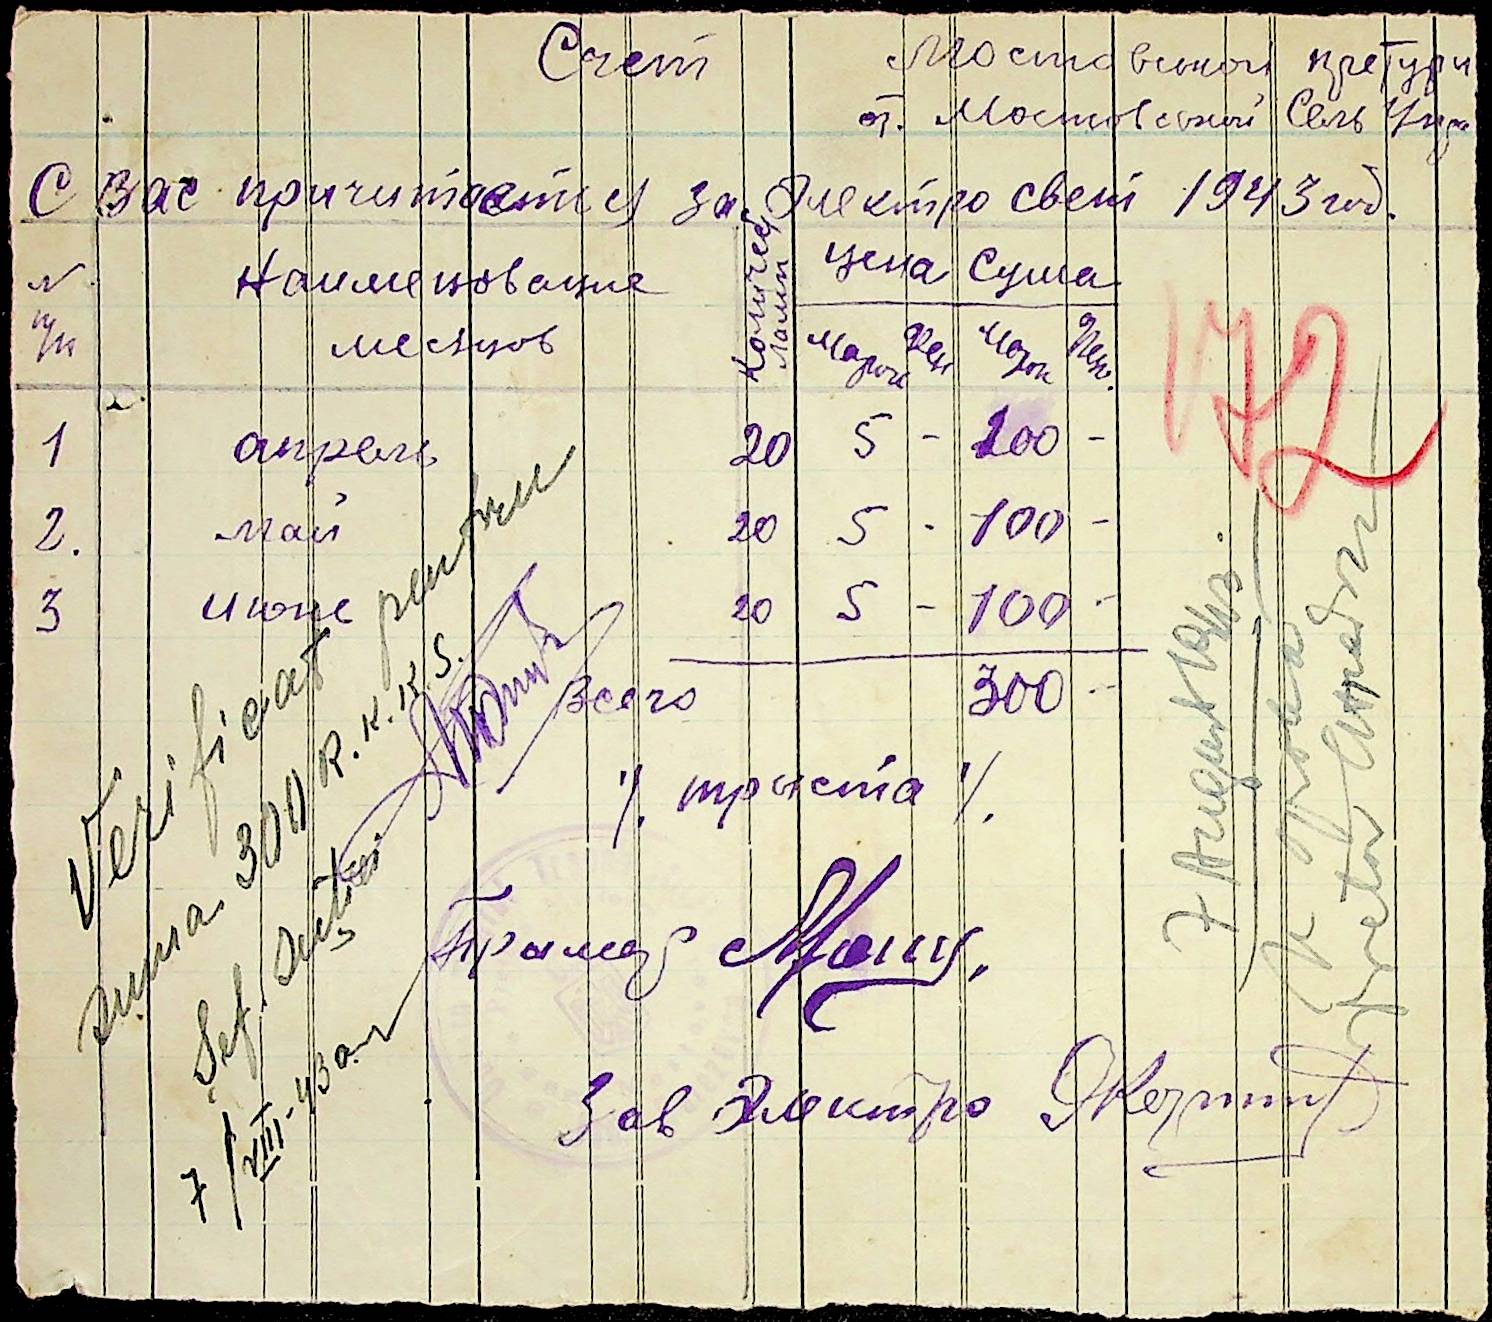 Счет
Мостовской претури
от. Мостовской Сель Упр
С вас причитается за Электро свет 1943 год.
№ п/п Наименование месяцов Количест ламп Цена Сума
Марок Фен Марок Фен.
1 апрель 20 5 - 100 -
2. май 20 5 - 100 -
3 июне 20 5 - 100 -
Всего 300 -
·/. триста ·/.
Примар
Зав Электро
Verificat pentru
suma 300 R.K.K.S.
Șef. Secției
7/VIII-43 a.
172
7 August 1943.
Pretor